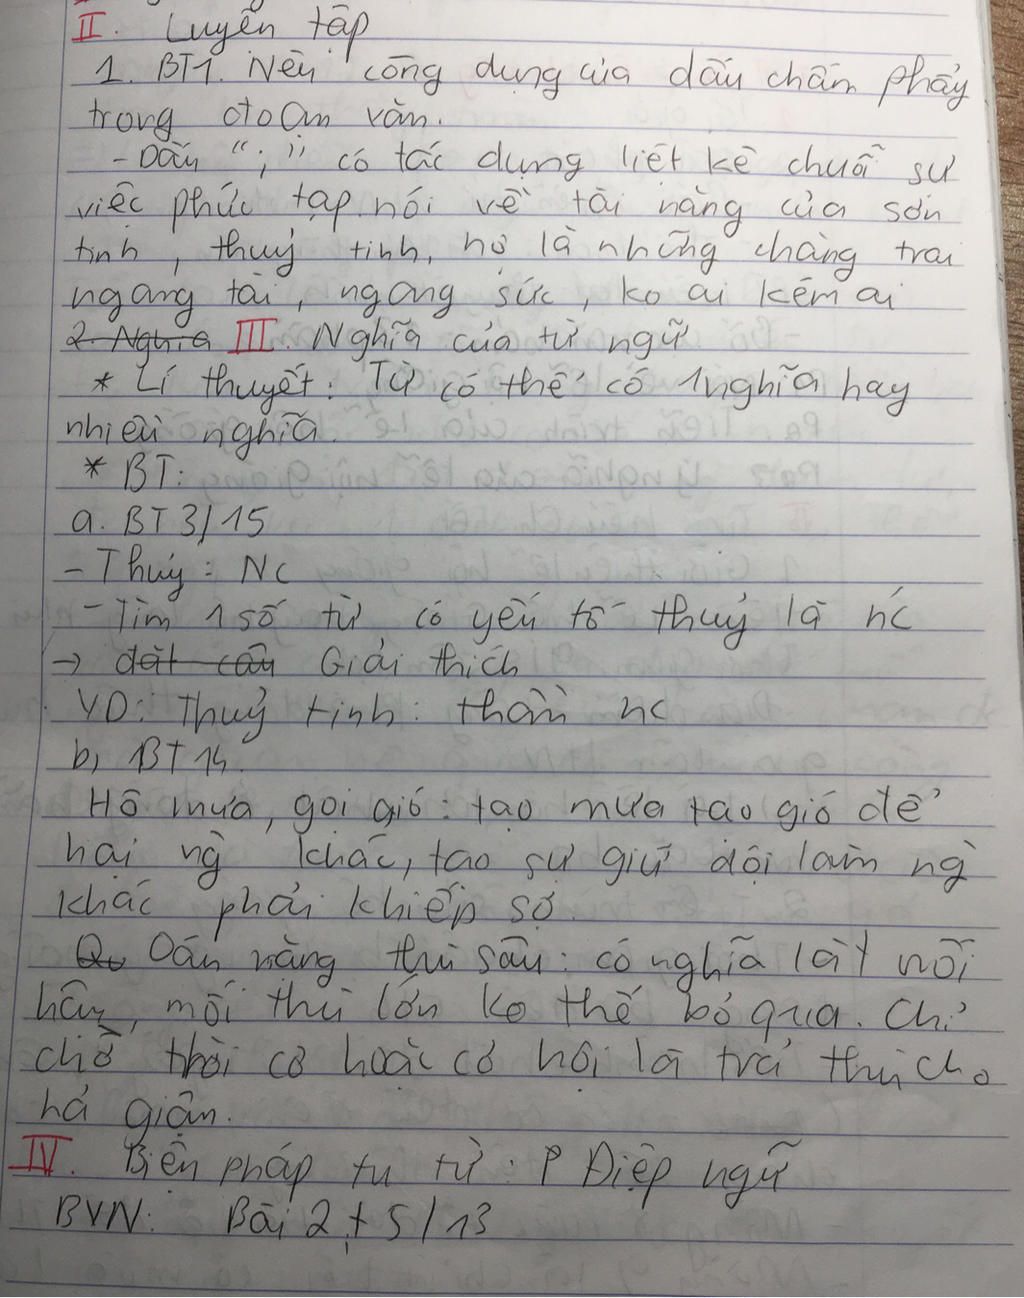 II. Luyện tập
1. BT1. Nêu công dụng của dấu chấm phẩy
trong đoạn văn.
- Dấu “;” có tác dụng liệt kê chuỗi sự
việc phức tạp nói về tài năng của sơn
tinh, thuỷ tinh, họ là những chàng trai
ngang tài, ngang sức, ko ai kém ai
2. Nghĩa III. Nghĩa của từ ngữ
* Lí thuyết: Từ có thể có 1 nghĩa hay
nhiều nghĩa.
* BT:
a. BT 3/15
- Thuỷ: Nc
- Tìm 1 số từ có yếu tố thuỷ là nc
→ đặt câu Giải thích
VD: Thuỷ tinh: thần nc
b, BT 14.
Hô mưa, gọi gió: tạo mưa tạo gió để
hại ng khác, tạo sự giữ dội làm ng
khác phải khiếp sợ.
Oán nặng thù sâu: có nghĩa là 1 nỗi
hận, mối thù lớn ko thể bỏ qua. Chỉ
chờ thời cơ hoặc cơ hội là trả thù cho
hả giận.
IV. Biện pháp tu từ: Điệp ngữ
BVN: Bài 2 + 5 / 13